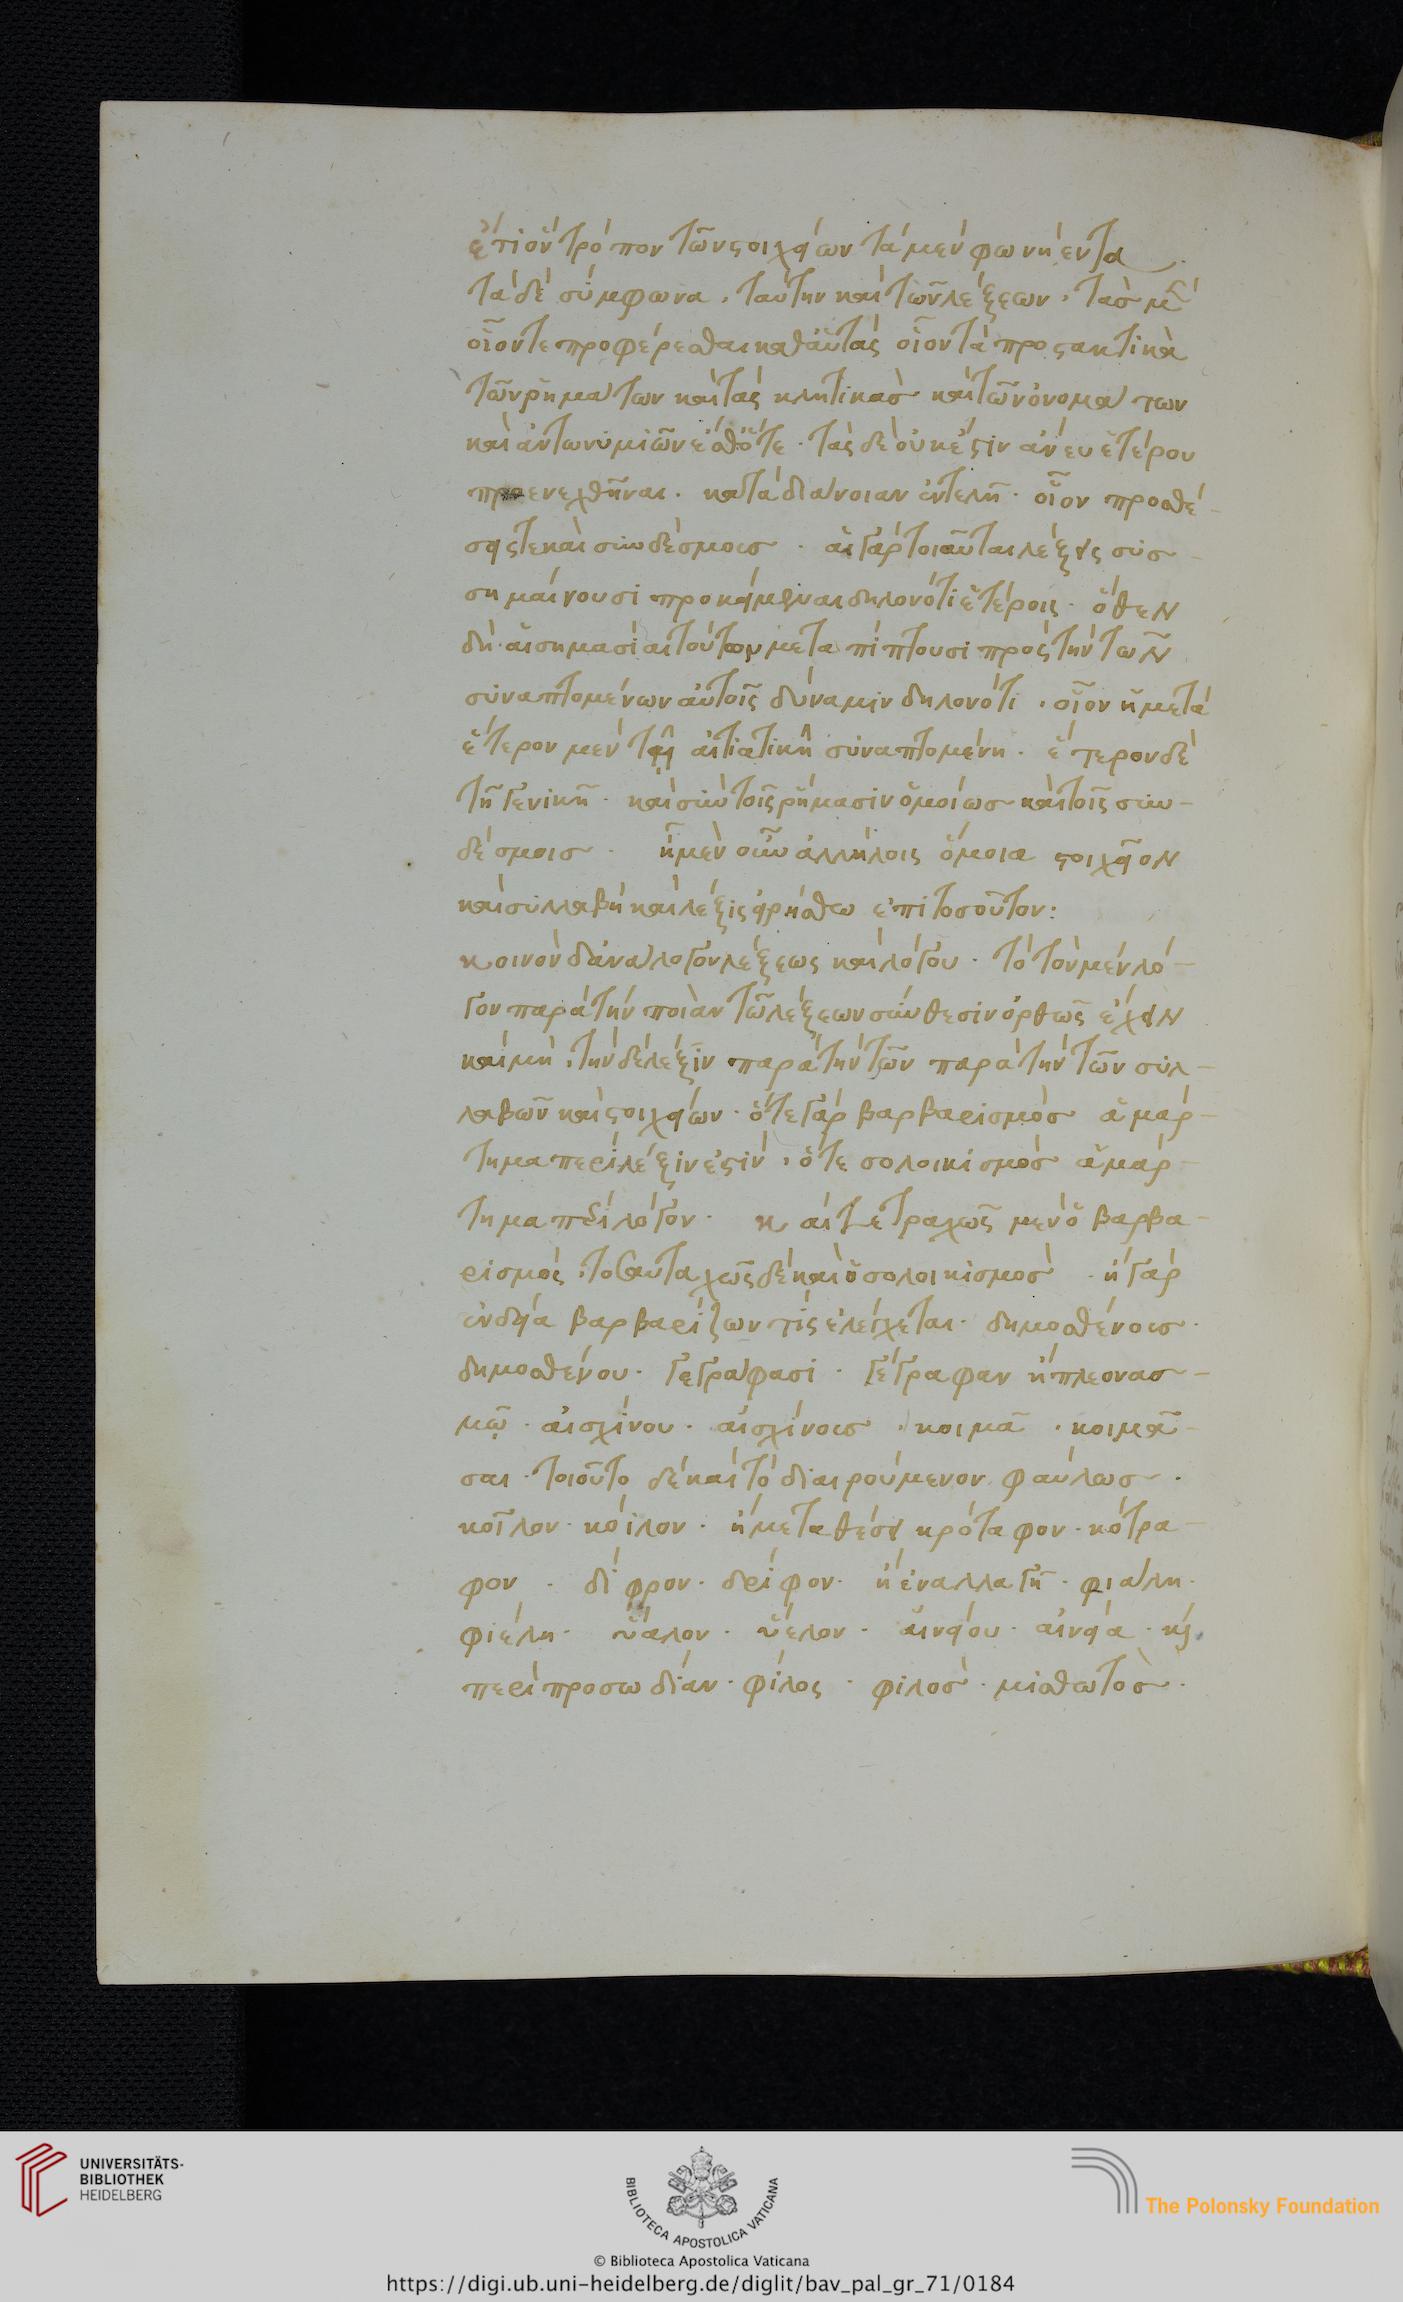 ἔτι ὃν τρόπον τῶν στοιχείων τὰ μὲν φωνήεντα
τὰ δὲ σύμφωνα, ταύτην καὶ τῶν λέξεων, τὰσ μὲν
οἷόν τε προφέρεσθαι καθ' αὑτὰς οἷον τὰ προστακτικὰ
τῶν ῥημάτων καὶ τὰς κλητικὰσ καὶ τῶν ὀνομάτων
καὶ ἀντωνυμιῶν ἔσθ' ὅτε · τὰς δὲ οὐκ ἔστιν ἄνευ ἑτέρου
προενεχθῆναι · κατὰ διάνοιαν ἐντελῆ · οἷον προθέ-
σεις τε καὶ συνδέσμοισ · αἱ γὰρ τοιαῦται λέξεις συσ-
σημαίνουσι προκείμεναι δηλονότι ἑτέροις · ὅθεν
δὴ αἱ σημασίαι τούτων μεταπίπτουσι πρὸς τὴν τῶν
συναπτομένων αὐτοῖς δύναμιν δηλονότι · οἷον ἡ μετὰ
ἕτερον μὲν τῇ αἰτιατικῇ συναπτομένη · ἕτερον δὲ
τῇ γενικῇ · καὶ σὺν τοῖς ῥήμασιν ὁμοίωσ καὶ τοῖς συν-
δέσμοισ · ᾗ μὲν οὖν ἀλλήλοις ὅμοια στοιχεῖον
καὶ συλλαβὴ καὶ λέξις εἰρήσθω ἐπὶ τοσοῦτον:
κοινὸν δ' ἀνάλογον λέξεως καὶ λόγου · τὸ τὸν μὲν λό-
γον παρὰ τὴν ποιὰν τῶ λέξεων σύνθεσιν ὀρθῶς ἔχειν
καὶ μή · τὴν δὲ λέξιν παρὰ τὴν τῶν παρὰ τὴν τῶν συλ-
λαβῶν καὶ στοιχείων · ὅ τε γὰρ βαρβαρισμὸσ ἁμάρ-
τημα περὶ λέξιν ἐστὶν · ὅ τε σολοικισμὸσ ἁμάρ-
τημα περὶ λόγον · καὶ τετραχῶς μὲν ὁ βαρβα-
ρισμὸς · τοσαυταχῶς δὲ καὶ ὁ σολοικισμὸσ · ἢ γὰρ
ἐνδείᾳ βαρβαρίζων τίς ἐλέγχεται · δημοσθένοισ ·
δημοσθένου · γεγράφασι · γέγραφαν ἢ πλεονασ-
μῷ · αἰσχίνου · αἰσχίνοισ · κοιμᾶ · κοιμᾶ-
σαι · τοιοῦτο δὲ καὶ τὸ διαιρούμενον φαύλωσ ·
κοῖλον · κόϊλον · ἢ μεταθέσει κρόταφον · κότρα-
φον · δίφρον · δρίφον · ἢ ἐναλλαγῇ · φιάλη ·
φιέλη · ὕαλον · ὕελον · αἰνείου · αἰνεία · ἢ
περὶ προσωδίαν · φίλος · φιλὸσ · μισθωτὸσ ·
UNIVERSITÄTS-
BIBLIOTHEK
HEIDELBERG
BIBLIOTECA APOSTOLICA VATICANA
© Biblioteca Apostolica Vaticana
The Polonsky Foundation
https://digi.ub.uni-heidelberg.de/diglit/bav_pal_gr_71/0184